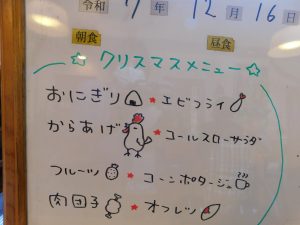 令和 7年 12月 16日
朝食 昼食
☆クリスマスメニュー☆
おにぎり ★ エビフライ
からあげ ★ コールスローサラダ
フルーツ ★ コーンポタージュ
肉団子 ★ オムレツ